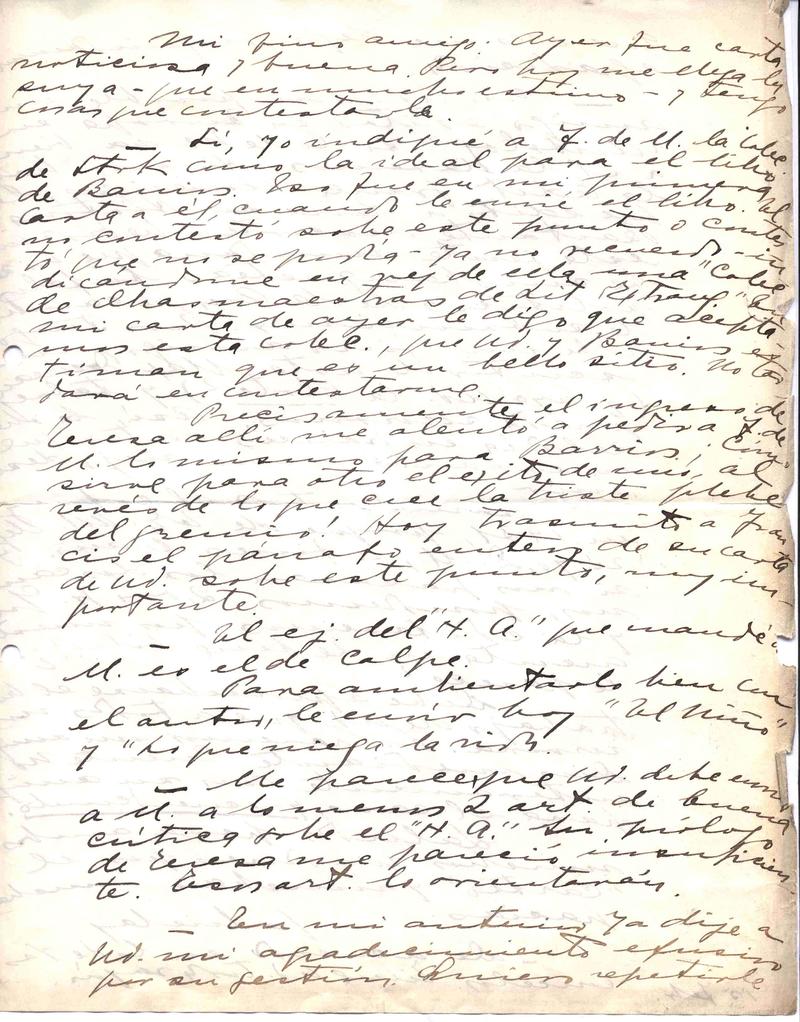 Mi fino amigo: Ayer fue carta
noticiosa y buena. Pero hoy me llega la
suya - que en mucho estimo - y tengo
cosas que contestarle.
Sí, yo indiqué a F. de M. la Colec.
de Stock como la ideal para el libro
de Barrios. Eso fue en mi primera
carta a él, cuando le envié el libro. El
no contestó sobre este punto o contes
tó que no se podía - ya no recuerdo - in
dicándome en vez de ella una "Colec
de Obras maestras de Lit Extranj." En
mi carta de ayer le digo que acepta-
mos esta colec., que Ud. y Barrios es
timan que es un bello sitio. No tar
dará en contestarme.
Precisamente, el ingreso de
Teresa allí me alentó a pedir a F. de
M. lo mismo para Barrios; Como
sirve para otro el éxito de uno, al
revés de lo que cree la triste plebe
del gremio! Hoy trasmito a Fran
cis el párrafo entero de su carta
de Ud. sobre este punto, muy im-
portante.
El ej. del "H. A." que mandé a
M. es el de Calpe.
Para ambientarlo bien con
el autor, le envío hoy "El Niño"
y "Lo que niega la vida.
Me parece que Ud. debe enviar
a M. a lo menos 2 art. de buena
crítica sobre el "H. A." Su prólogo
de Teresa me pareció insuficien-
te. Esos art. lo orientarán.
En mi anterior ya dije a
Ud. mi agradecimiento efusivo
por su gestión. Quiero repetirle